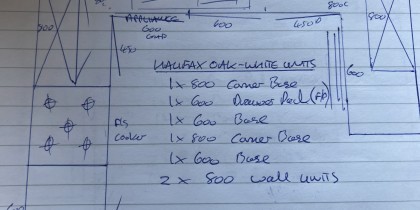 800C
APPLIANCE
600
600
450D
800
300
450
600
HALIFAX OAK-WHITE UNITS
1x 800 Corner Base
1x 600 Drawer Pack (FB)
1x 600 Base
F/S
Cooker
1x 800 Corner Base
1x 600 Base
2 x 800 wall units